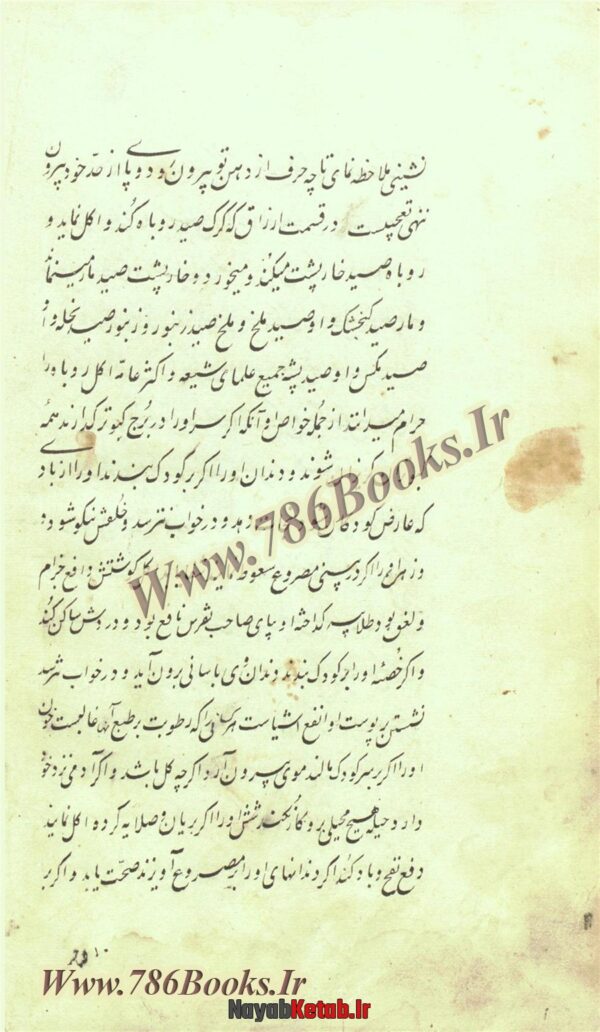 نشینی ملاحظه نمای تا چه حرف از دهن تو بیرون رود و پا از حدّ خود بیرون
ننهی تعجبیست در قسمت ارزاق که کرک صید روباه کُند و اکل نماید و
روباه صید خارپشت میکُند و میخورد و خارپشت صید مار مینماید
و مار صید کنجشک و او صید ملخ و ملخ صید زنبور و زنبور صید نحله و او
صید مکس و او صید پشه جمیع علمای شیعه و اکثر عامّه اکل روباه را
حرام میدانند از جمله خواص او آنکه اکر سر او را در برج کبوتر کذارند همهٔ
شوند و دندان او را اکر بر کودک بندند او را از باد
که عارض کودکان و در خواب نترسد و خُلقش نیکو شود و
و زهره او را اکر در بینی مصروع سعوط کوشتش دافع خرام
و لغو بود طلا پیه کداخته او بپای صاحب نقرس نافع بود و دردش ساکن کُند
و اکر خُصیه او را بر کودک بندند دندان وی باسانی برون آید و در خواب نترسد
نشستن بر پوست او انفع اشیاست را که رطوبت بر طبع آنها غالبست خون
او را اکر بر سر کودک مالند موی بیرون آرد اکرچه کل باشد و اکر آدمی نزد خود
دارد حیله هیچ محیلی برو کار نکند شش او را اکر بریان و صلایه کرده اکل نمایند
دفع نفخ و باد کند اکر دندانهای او را بر مصروع آویزند صحّت یابد و اکر بر
Www.786Books.Ir
Www.786Books.Ir
NayabKetab.ir